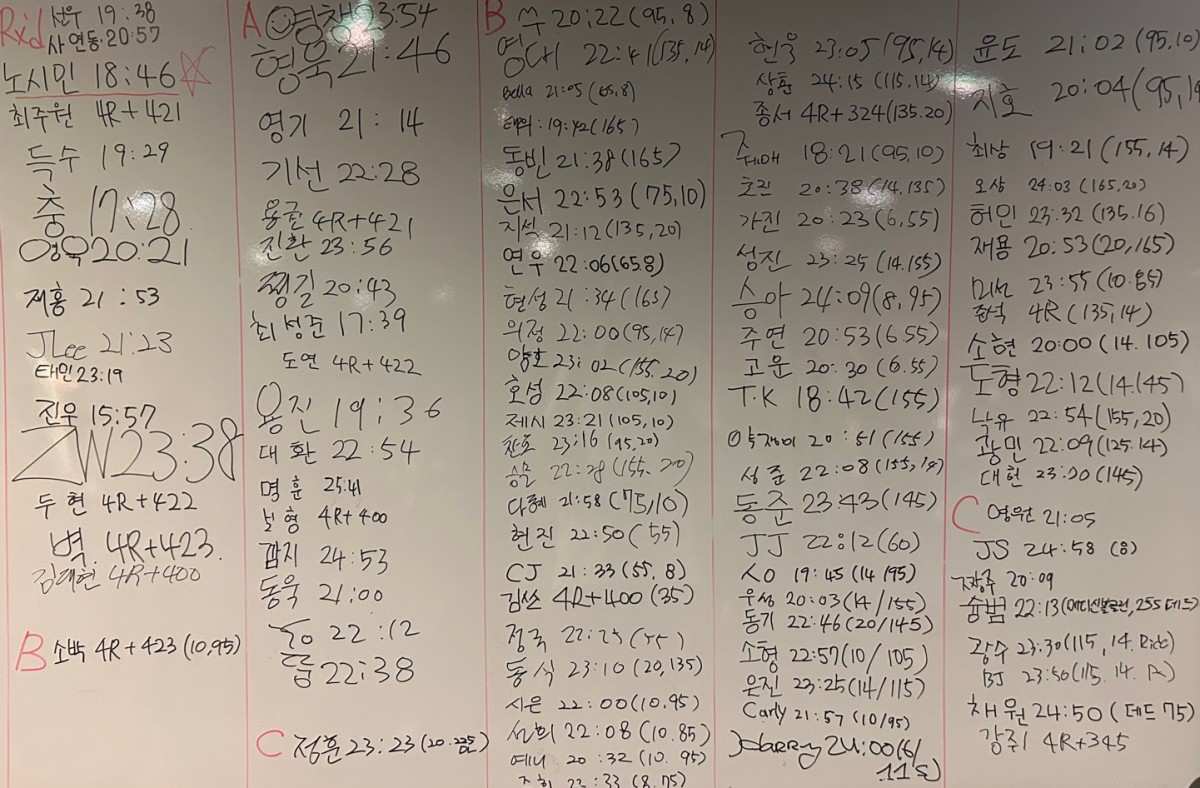 Rxd 선우 19:38
사 연동:20:57
노시민 18:46
최주원 4R+421
득수 19:29
충 17:28
영욱 20:21
제홍 21:53
JLee 21:23
태민 23:19
진우 15:57
ZW 23:38
두현 4R+422
벽 4R+423
김대현 4R+400
B 소박 4R+423 (10,95)
A 영창 23:54
형욱 21:46
영기 21:14
기선 22:28
용근 4R+421
진환 23:56
찡길 20:43
최성준 17:39
도연 4R+422
용진 19:36
대환 22:54
명훈 25:41
보형 4R+400
깜지 24:53
동욱 21:00
22:12
룹 22:38
C 정훈 23:23 (20.225)
B 쓰 20:22 (95,8)
영대 22:41 (135,14)
Bella 21:05 (65,8)
태의: 19:42 (165)
동빈 21:38 (165)
은서 22:53 (75,10)
지석 21:12 (135,20)
연우 22:06 (65.8)
현성 21:34 (165)
위정 22:00 (95,14)
양호 23:02 (155.20)
호성 22:08 (105,10)
제시 23:21 (105,10)
찬호 23:16 (95,20)
승모 22:28 (155.20)
다혜 21:58 (75,10)
현진 22:50 (55)
CJ 21:33 (55.8)
김쓰 4R+400 (35)
정국
동식 23:10 (20,135)
시은 22:00 (10.95)
선희 22:08 (10.85)
예니 20:32 (10.95)
22:33 (8.75)
헌욱 23:05 (95,14)
상환 24:15 (115,14)
종서 4R+324 (135.20)
18:21 (95,10)
호진 20:38 (14.135)
가진 20:23 (6,55)
성진 23:25 (14.155)
승아 24:09 (8,95)
주연 20:53 (6.55)
고운 20:30 (6.55)
T.K 18:42 (155)
20:51 (155)
성준 22:08 (155,14)
동준 23:43 (145)
JJ 22:12 (60)
SO 19:45 (14/95)
우성 20:03 (14/155)
동기 22:46 (20/145)
소형 22:57 (10/105)
은진 23:25 (14/115)
Carly 21:57 (10/95)
Harry 24:00 (6/
115)
윤도 21:02 (95,10)
지호 20:04 (95,14
최상 19:21 (155,14)
오상 24:03 (165,20)
허인 23:32 (135.16)
재용 20:53 (20,165)
미선 23:55 (10.85)
준석 4R (135,14)
소현 20:00 (14.105)
도형 22:12 (14.145)
낙유 22:54 (155,20)
광민 22:09 (125.14)
대헌 23:20 (145)
C 영원 21:05
JS 24:58 (8)
장주 20:09
슝범 22:13 (메디신볼클린, 255 데드)
광수 23:30 (115, 14. Rick)
BJ 23:50 (115. 14. )
채원 24:50 (데드 75)
강주1 4R+345